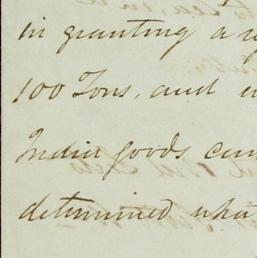 in granting a
100 Tons, and
India goods can
determined what